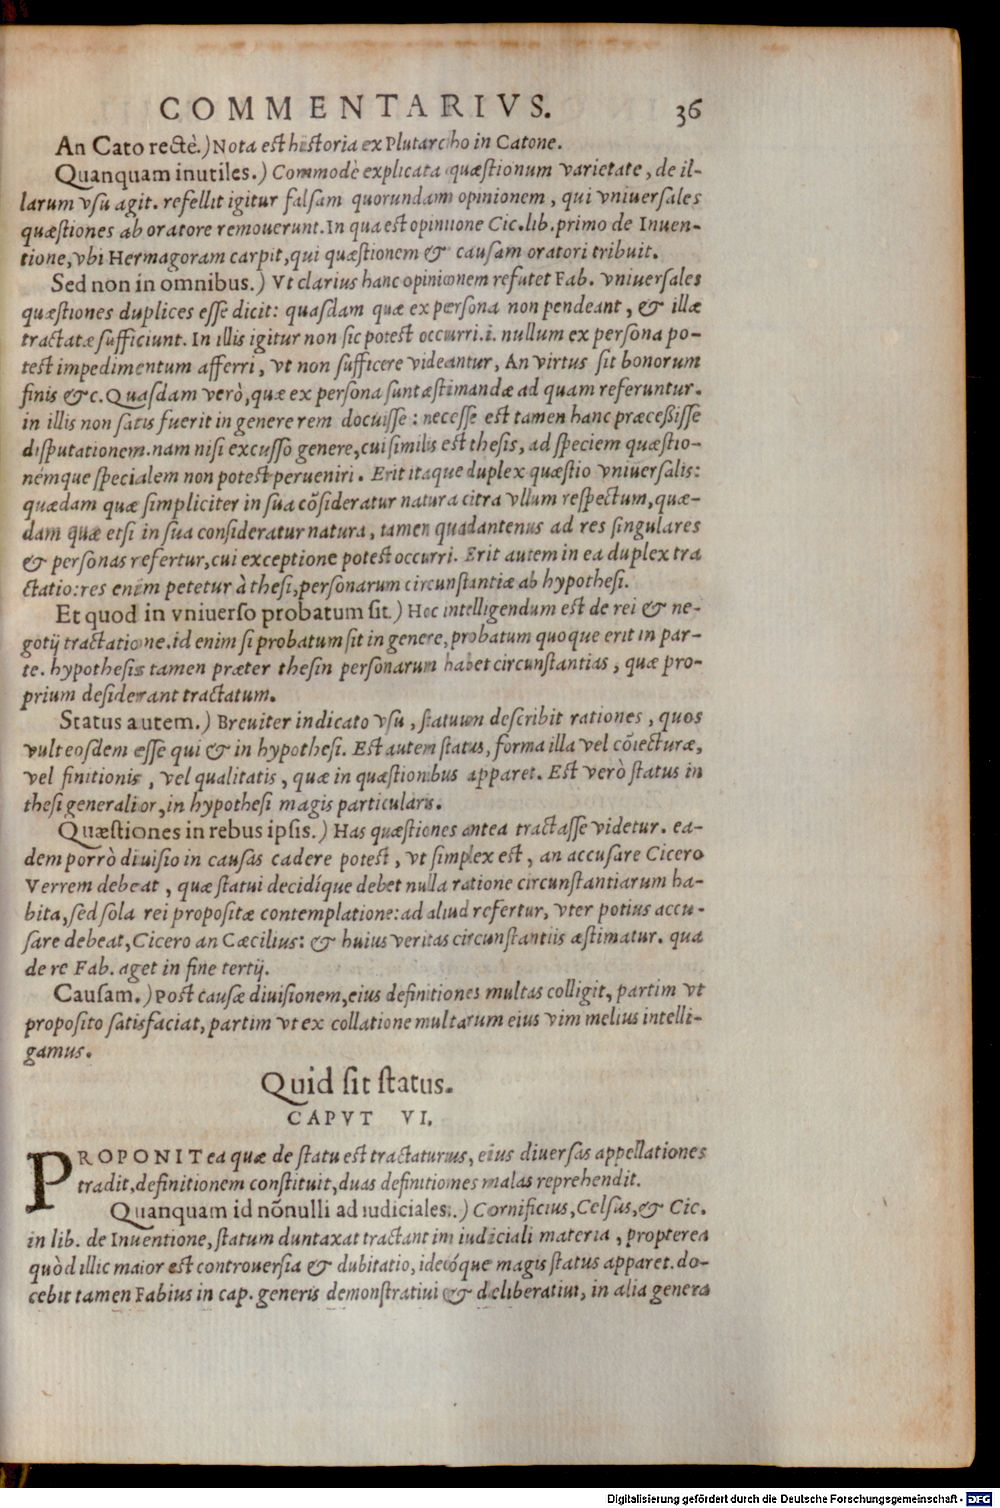 COMMENTARIVS. 36
An Cato rectè.) Nota est historia ex Plutarcho in Catone.
Quanquam inutiles.) Commodè explicata quæstionum varietate, de il-
larum vsu agit. refellit igitur falsam quorundam opinionem, qui vniuersales
quæstiones ab oratore remouerunt. In qua est opinione Cic. lib. primo de Inuen-
tione, vbi Hermagoram carpit, qui quæstionem & causam oratori tribuit.
Sed non in omnibus.) Vt clarius hanc opinionem refutet Fab. vniuersales
quæstiones duplices esse dicit: quasdam quæ ex persona non pendeant, & illæ
tractatæ sufficiunt. In illis igitur non sic potest occurri. i. nullum ex persona po-
test impedimentum afferri, vt non sufficere videantur, An virtus sit bonorum
finis &c. Quasdam verò, quæ ex persona sunt æstimandæ ad quam referuntur.
in illis non satis fuerit in genere rem docuisse: necesse est tamen hanc præceßisse
disputationem. nam nisi excusso genere, cui similis est thesis, ad speciem quæstio-
némque specialem non potest perueniri. Erit itaque duplex quæstio vniuersalis:
quædam quæ simpliciter in sua cõsideratur natura citra vllum respectum, quæ-
dam quæ etsi in sua consideratur natura, tamen quadantenus ad res singulares
& personas refertur, cui exceptione potest occurri. Erit autem in ea duplex tra
ctatio: res enim petetur à thesi, personarum circunstantiæ ab hypothesi.
Et quod in vniuerso probatum sit.) Hoc intelligendum est de rei & ne-
gotij tractatione. id enim si probatum sit in genere, probatum quoque erit in par-
te. hypothesis tamen præter thesin personarum habet circunstantias, quæ pro-
prium desiderant tractatum.
Status autem.) Breuiter indicato vsu, statuum describit rationes, quos
vult eosdem esse qui & in hypothesi. Est autem status, forma illa vel cõiecturæ,
vel finitionis, vel qualitatis, quæ in quæstionibus apparet. Est verò status in
thesi generalior, in hypothesi magis particularis.
Quæstiones in rebus ipsis.) Has quæstiones antea tractasse videtur. ea-
dem porrò diuisio in causas cadere potest, vt simplex est, an accusare Cicero
Verrem debeat, quæ statui decidíque debet nulla ratione circunstantiarum ha-
bita, sed sola rei propositæ contemplatione: ad aliud refertur, vter potius accu-
sare debeat, Cicero an Cæcilius: & huius veritas circunstantiis æstimatur. qua
de re Fab. aget in fine tertij.
Causam.) Post causæ diuisionem, eius definitiones multas colligit, partim vt
proposito satisfaciat, partim vt ex collatione multarum eius vim melius intelli-
gamus.
Quid sit status.
CAPVT VI.
PROPONIT ea quæ de statu est tractaturus, eius diuersas appellationes
tradit, definitionem constituit, duas definitiones malas reprehendit.
Quanquam id nõnulli ad iudiciales.) Cornificius, Celsus, & Cic.
in lib. de Inuentione, statum duntaxat tractant in iudiciali materia, propterea
quòd illic maior est controuersia & dubitatio, ideóque magis status apparet. do-
cebit tamen Fabius in cap. generis demonstratiui & deliberatiui, in alia genera
Digitalisierung gefördert durch die Deutsche Forschungsgemeinschaft - DFG